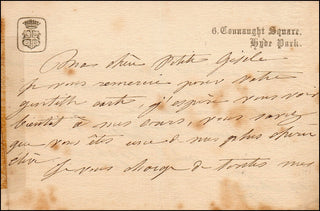 6. Connaught Square.
Hyde Park.
Ma chère Petite Gisèle
Je vous remercie pour votre
gentille carte, j'espère vous voir
bientôt à mes cours, vous savez
que vous êtes une de mes plus chères
élève
Je vous charge de toutes mes